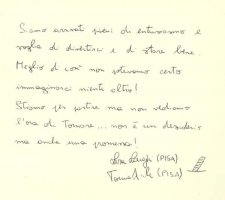 Siamo arrivati pieni di entusiasmo e
voglia di divertirci e di stare bene.
Meglio di così non potevamo certo
immaginarci niente altro!
Stiamo per partire ma non vediamo
l'ora di tornare... non è un desiderio
ma anche una promessa!
(PISA)
(PISA)